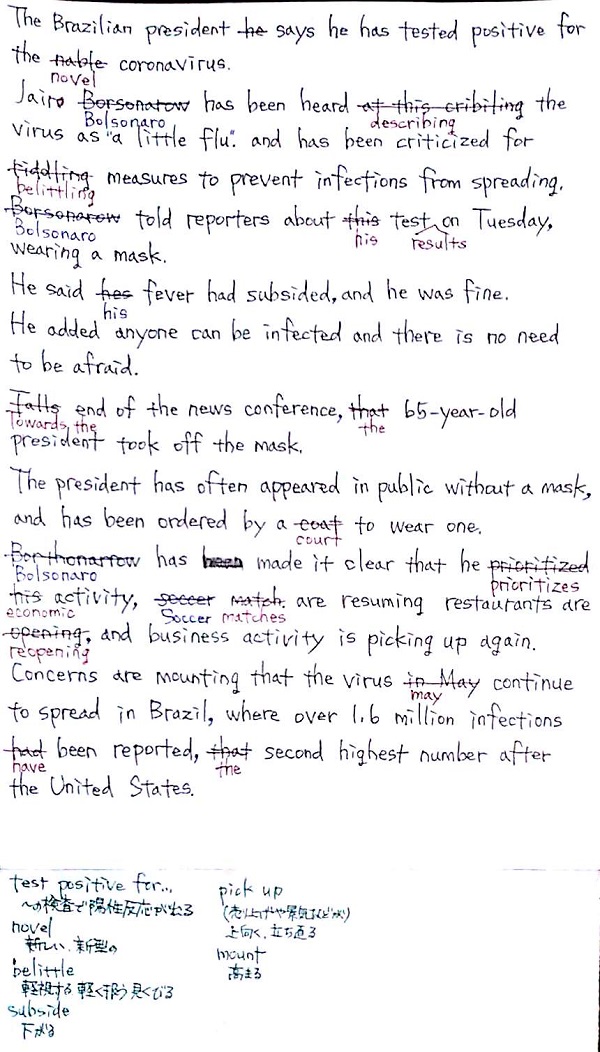 The Brazilian president he says he has tested positive for
the nable coronavirus.
novel
Jairo Borsonarow has been heard at this cribiting the
Bolsonaro describing
virus as "a little flu". and has been criticized for
fiddling measures to prevent infections from spreading.
belittling
Borsonarow told reporters about this test on Tuesday,
Bolsonaro his results
wearing a mask.
He said hes fever had subsided, and he was fine.
his
He added anyone can be infected and there is no need
to be afraid.
Talls end of the news conference, that 65-year-old
Towards the the
president took off the mask.
The president has often appeared in public without a mask,
and has been ordered by a coat to wear one.
court
Borthonarrow has been made it clear that he prioritized
Bolsonaro prioritizes
his activity, soccer match. are resuming restaurants are
economic Soccer matches
opening, and business activity is picking up again.
reopening
Concerns are mounting that the virus in May continue
may
to spread in Brazil, where over 1.6 million infections
had been reported, that second highest number after
have the
the United States.
test positive for...
〜の検査で陽性反応が出る
novel
新しい、新型の
belittle
軽視する 軽く扱う 見くびる
subside
下がる
pick up
(売り上げや景気などが)
上向く、立ち直る
mount
高まる